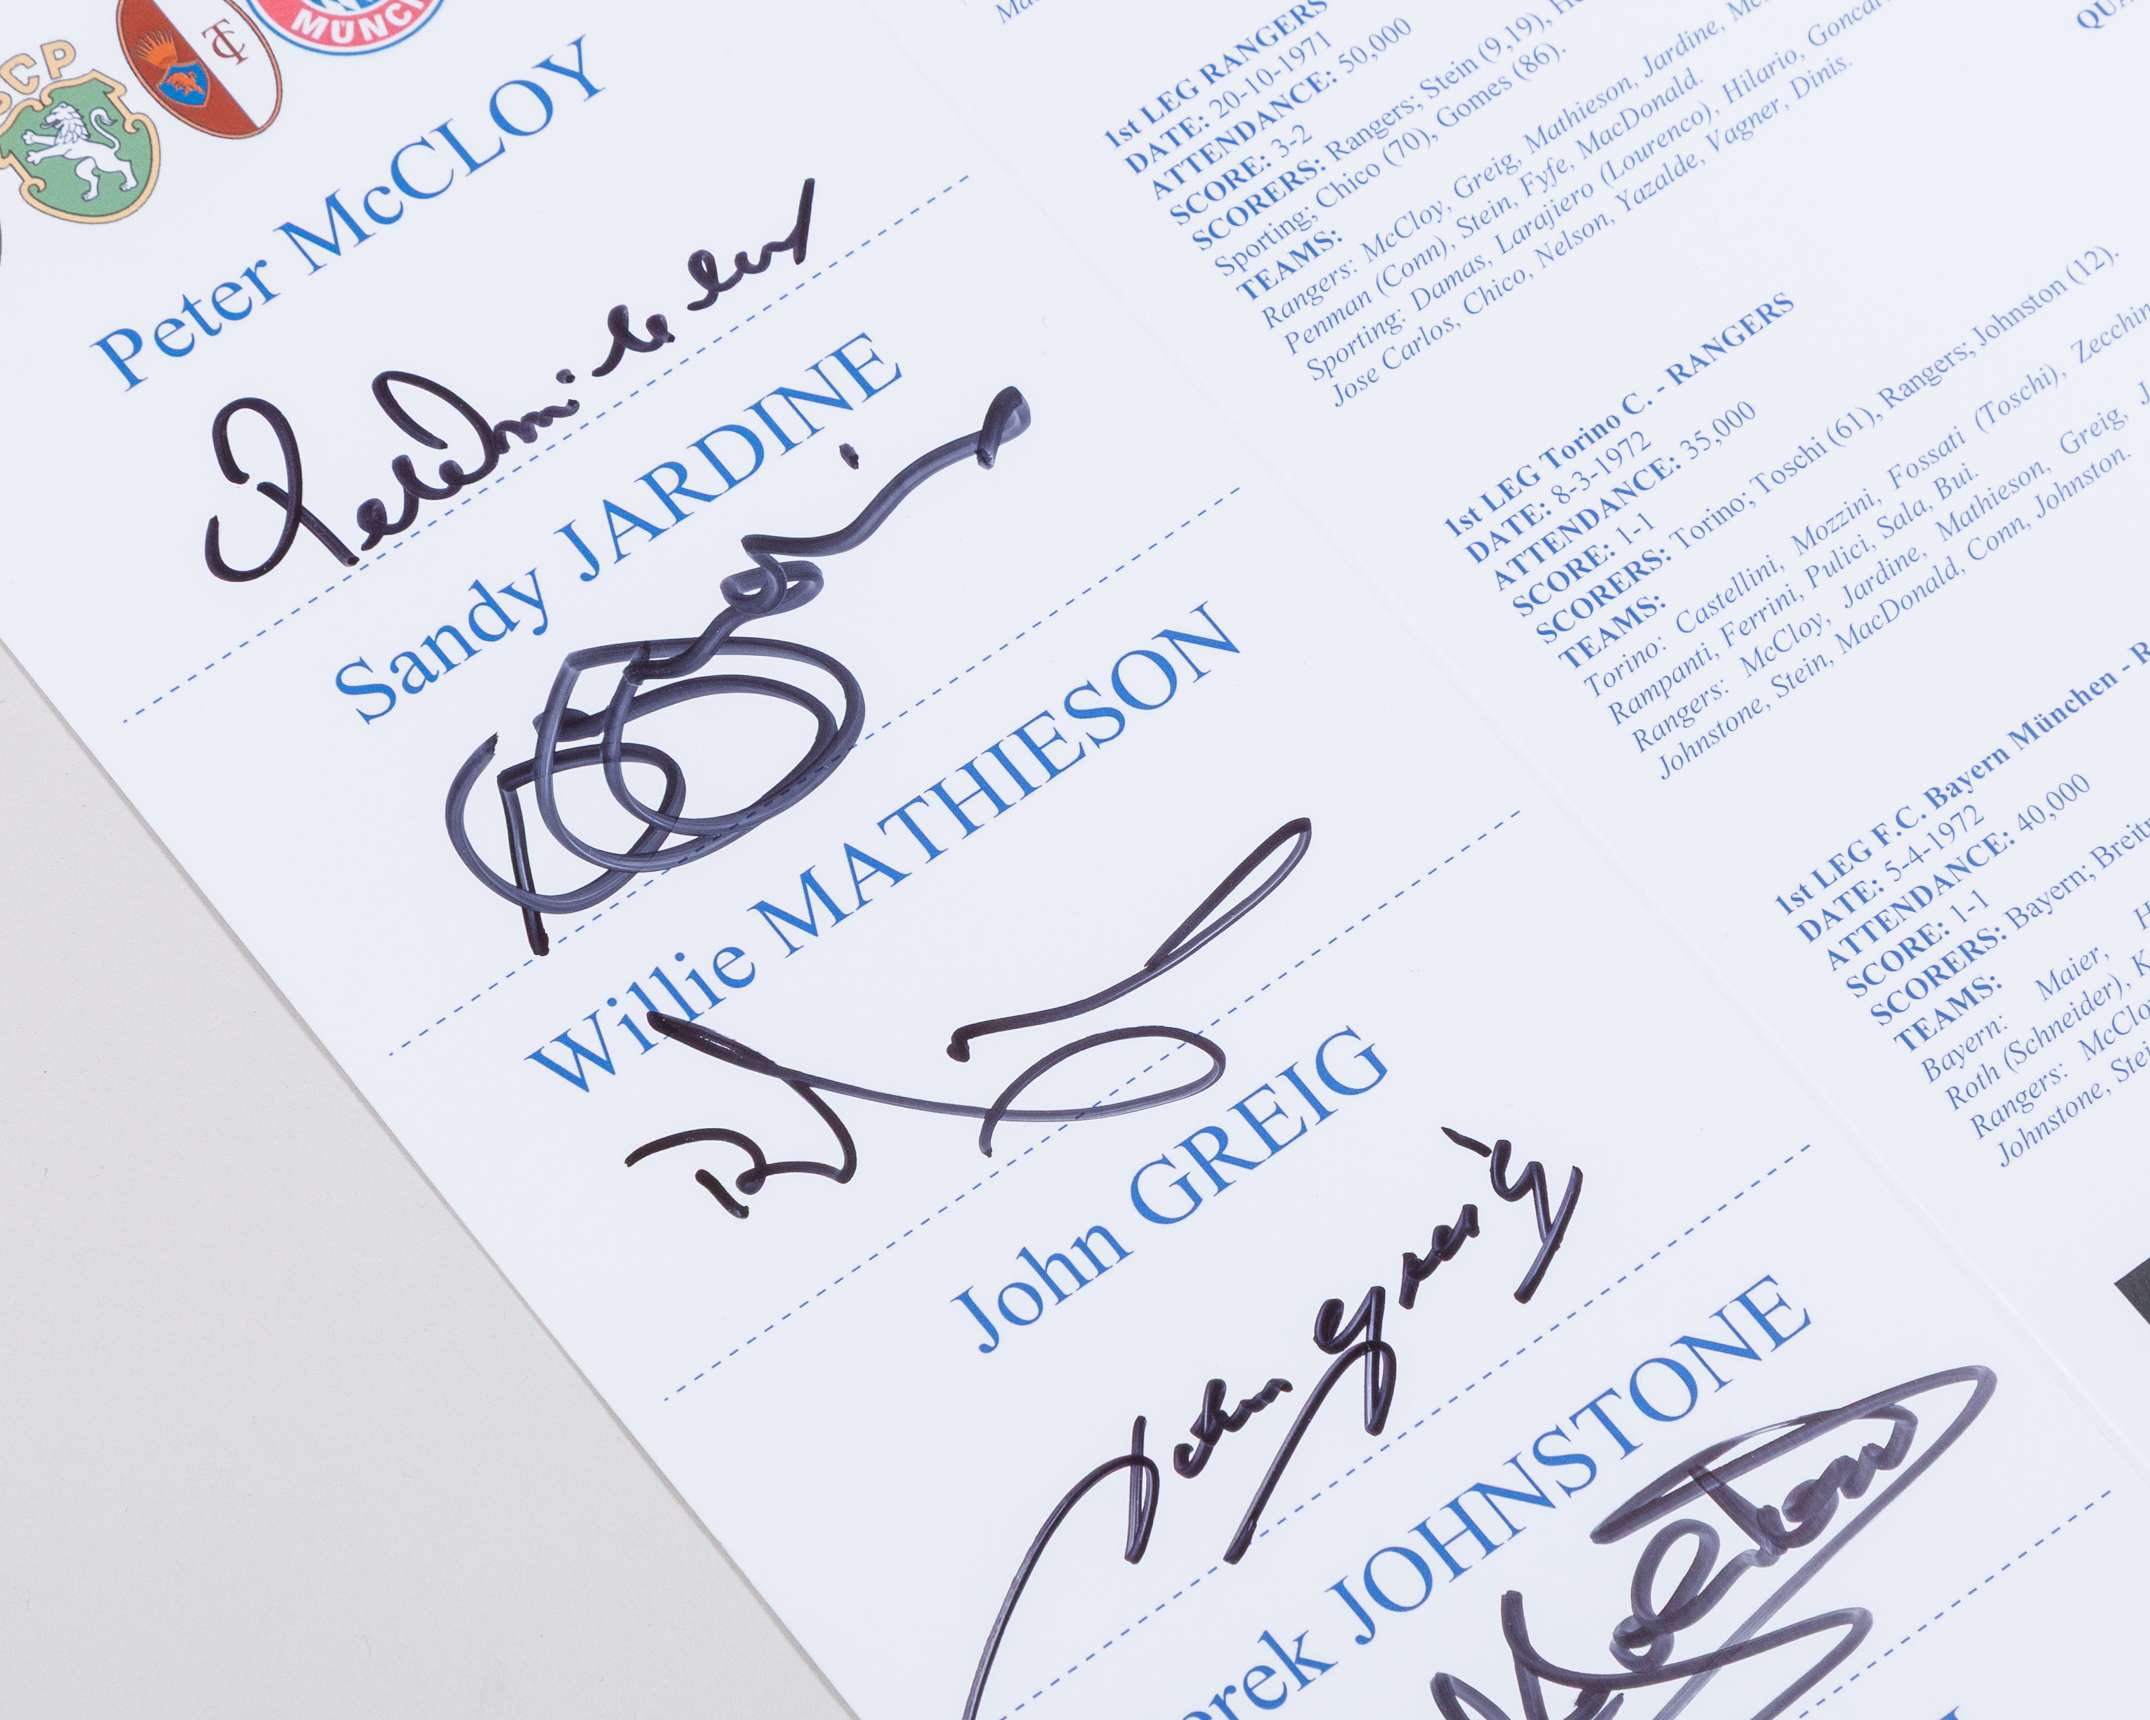 SCP
TC
MÜNCH
Peter McCLOY
Sandy JARDINE
Willie MATHIESON
John GREIG
John Greig
erek JOHNSTONE
1st LEG RANGERS
DATE: 20-10-1971
ATTENDANCE: 50,000
SCORE: 3-2
SCORERS: Rangers; Stein (9,19), He
Sporting; Chico (70), Gomes (86).
TEAMS:
Rangers: McCloy, Greig, Mathieson, Jardine, Mc
Penman (Conn), Stein, Fyfe, MacDonald.
Sporting: Damas, Larajiero (Lourenco), Hilario, Goncal
Jose Carlos, Chico, Nelson, Yazalde, Vagner, Dinis.
1st LEG Torino C. - RANGERS
DATE: 8-3-1972
ATTENDANCE: 35,000
SCORE: 1-1
SCORERS: Torino; Toschi (61), Rangers; Johnston (12).
TEAMS:
Torino: Castellini, Mozzini, Fossati (Toschi), Zecchin
Rampanti, Ferrini, Pulici, Sala, Bui.
Rangers: McCloy, Jardine, Mathieson, Greig, J
Johnstone, Stein, MacDonald, Conn, Johnston.
1st LEG F.C. Bayern München - R
DATE: 5-4-1972
ATTENDANCE: 40,000
SCORE: 1-1
SCORERS: Bayern; Breitn
TEAMS:
Bayern: Maier, H
Roth (Schneider), K
Rangers: McClo
Johnstone, Stei
QUA